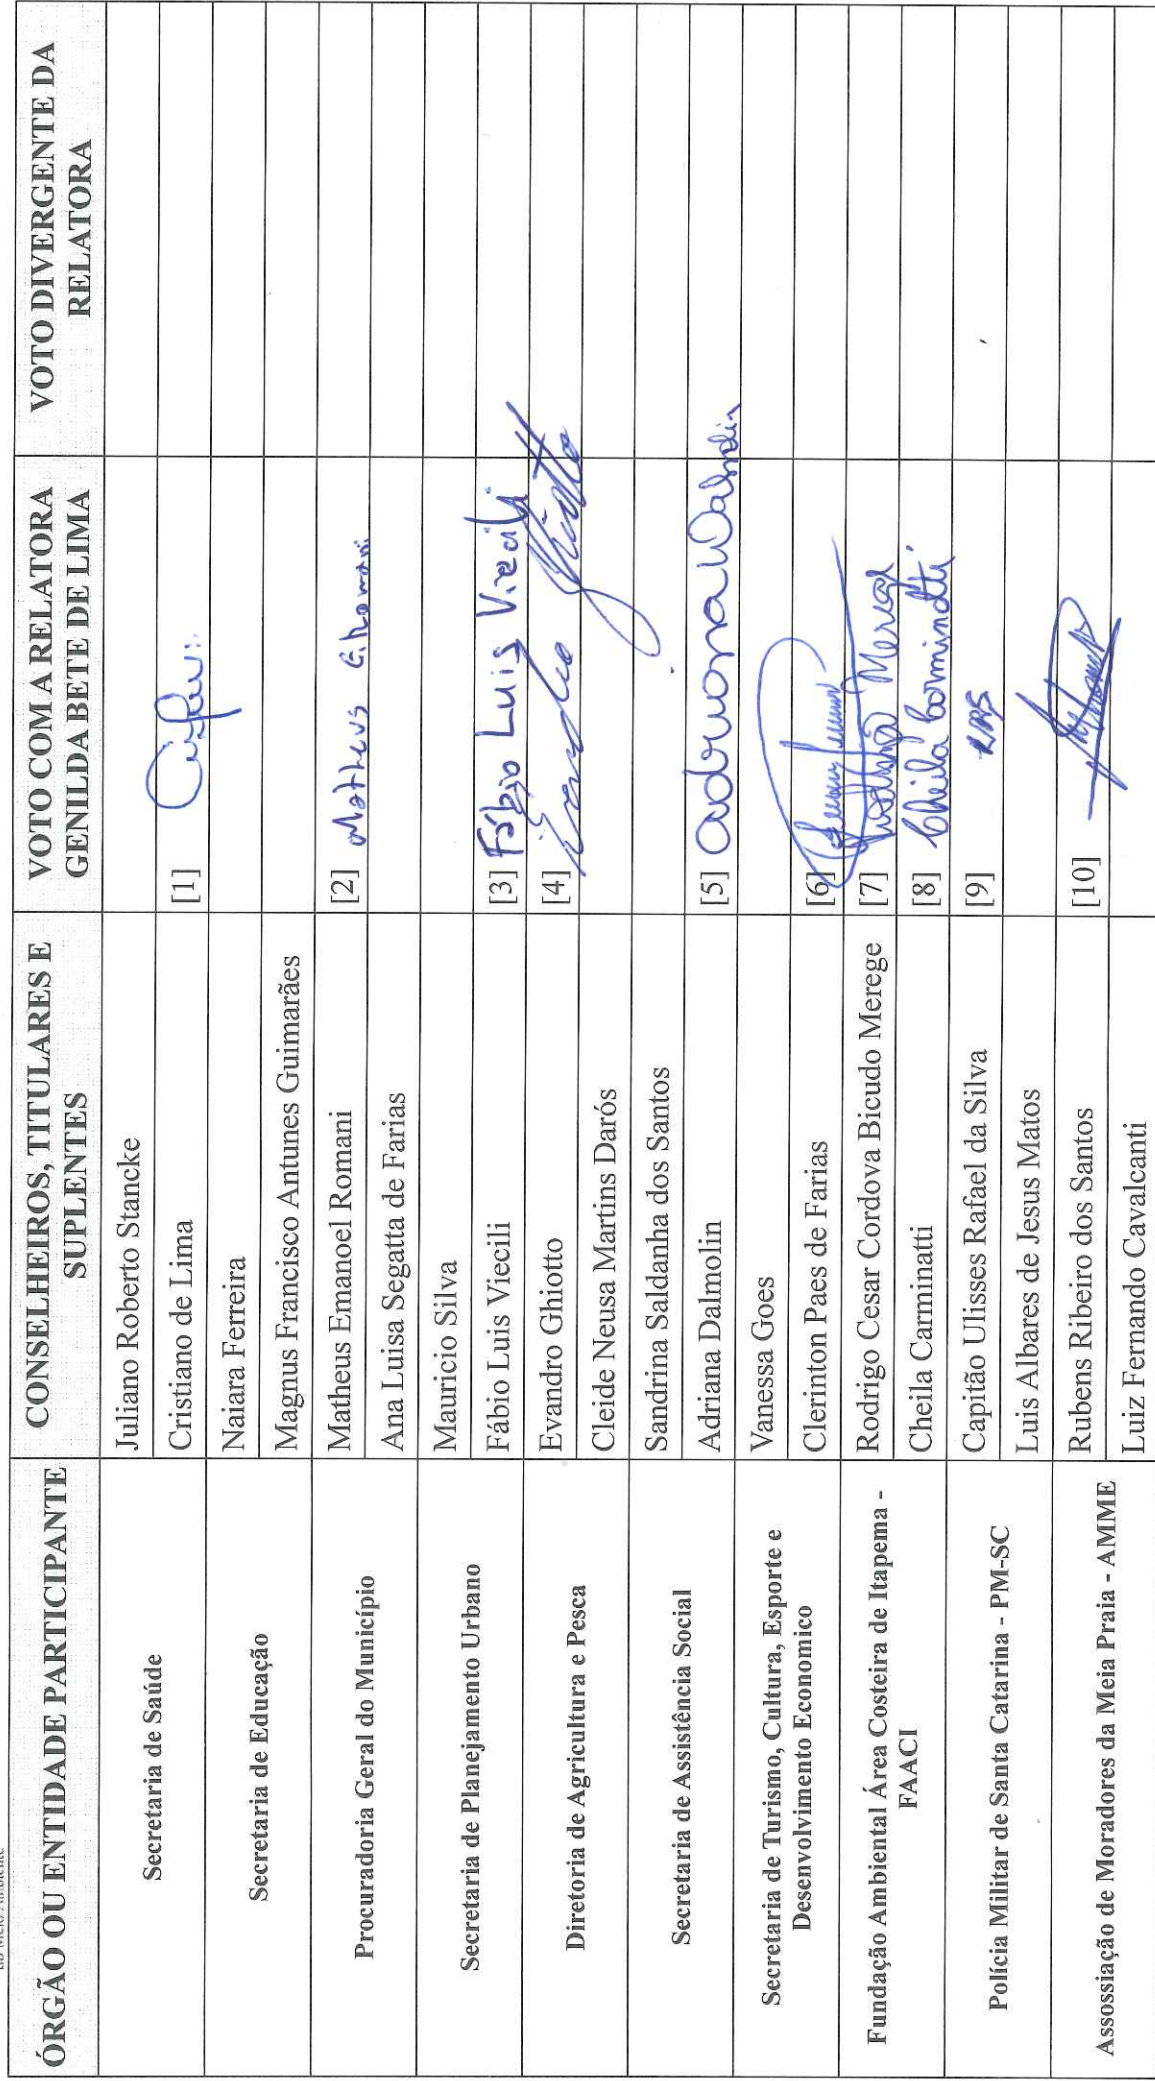 ÓRGÃO OU ENTIDADE PARTICIPANTE
CONSELHEIROS, TITULARES E
SUPLENTES
VOTO COM A RELATORA
GENILDA BETE DE LIMA
VOTO DIVERGENTE DA
RELATORA
Secretaria de Saúde
Juliano Roberto Stancke
Cristiano de Lima
[1]
Secretaria de Educação
Naiara Ferreira
Magnus Francisco Antunes Guimarães
Procuradoria Geral do Município
Matheus Emanoel Romani
[2] Matheus E. Romani
Ana Luisa Segatta de Farias
Secretaria de Planejamento Urbano
Mauricio Silva
Fábio Luis Viecili
[3] Fábio Luis Viecili
Diretoria de Agricultura e Pesca
Evandro Ghiotto
[4] Evandro Ghiotto
Cleide Neusa Martins Darós
Secretaria de Assistência Social
Sandrina Saldanha dos Santos
Adriana Dalmolin
[5] Adriana Dalmolin
Secretaria de Turismo, Cultura, Esporte e
Desenvolvimento Economico
Vanessa Goes
Clerinton Paes de Farias
[6]
Fundação Ambiental Área Costeira de Itapema -
FAACI
Rodrigo Cesar Cordova Bicudo Merege
[7] Merege
Cheila Carminatti
[8] Cheila Carminatti
Polícia Militar de Santa Catarina - PM-SC
Capitão Ulisses Rafael da Silva
[9]
Luis Albares de Jesus Matos
Assossiação de Moradores da Meia Praia - AMME
Rubens Ribeiro dos Santos
[10]
Luiz Fernando Cavalcanti